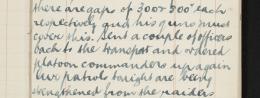 there are gaps of 300x 500x each
respectively and his guns must
cover this. Sent a couple of officers
back to the transport and ordered
platoon commanders up again
Two patrols tonight are being
strengthened from the raiders